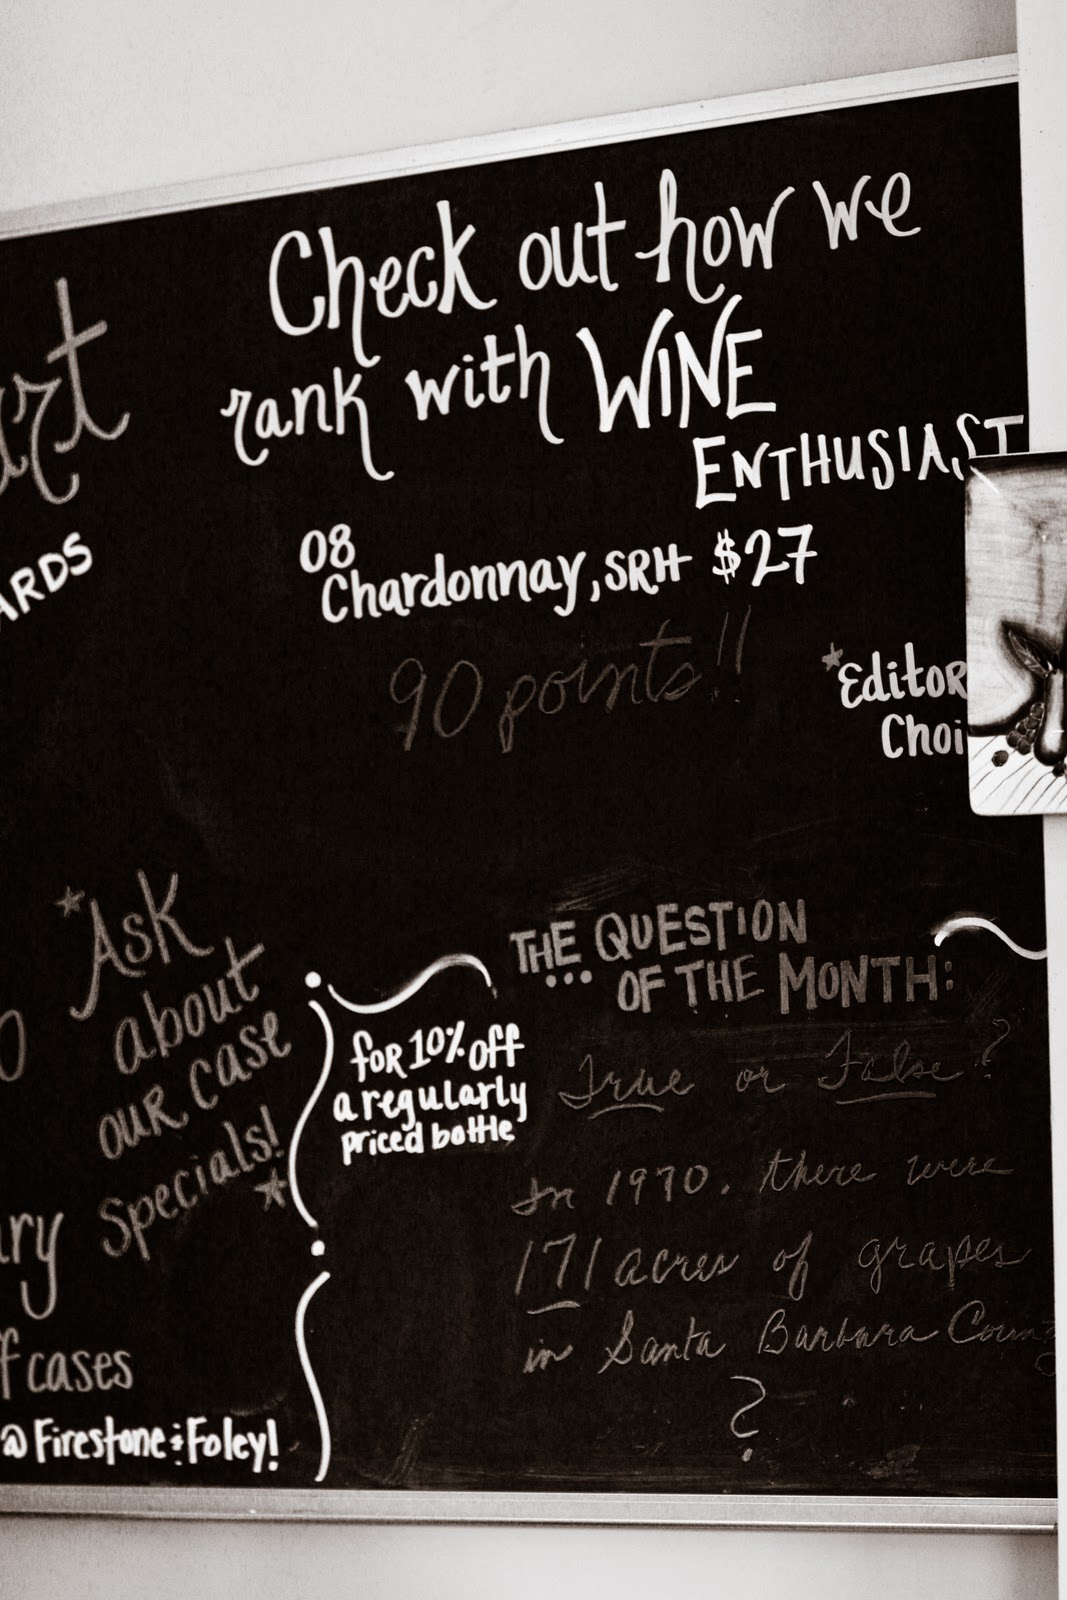 Check out how we
rank with WINE
ENTHUSIAST
08
Chardonnay, SRH $27
90 points!!
*Editor
Choi
art
ARDS
*Ask
about
our case
specials!*
ary
f cases
@ Firestone & Foley!
for 10% off
a regularly
priced bottle
THE QUESTION
OF THE MONTH:
True or False?
In 1970, there were
171 acres of grapes
in Santa Barbara County
?